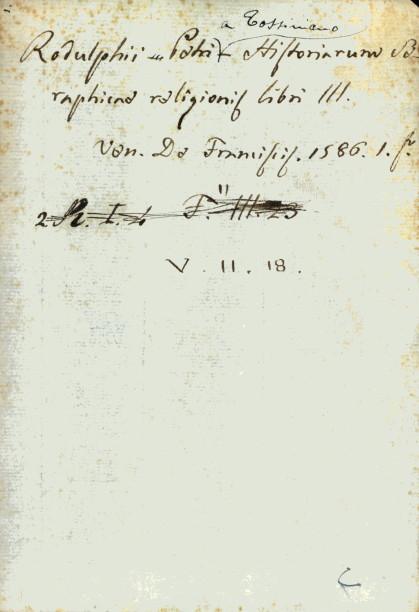 a Tossiniano
Rodulphii Petri Historiarum Se-
raphicae religionis libri III.
Ven. De Franciscis. 1586. 1. f.
2. R. I. 4 F. III. 23
V. 11. 18.